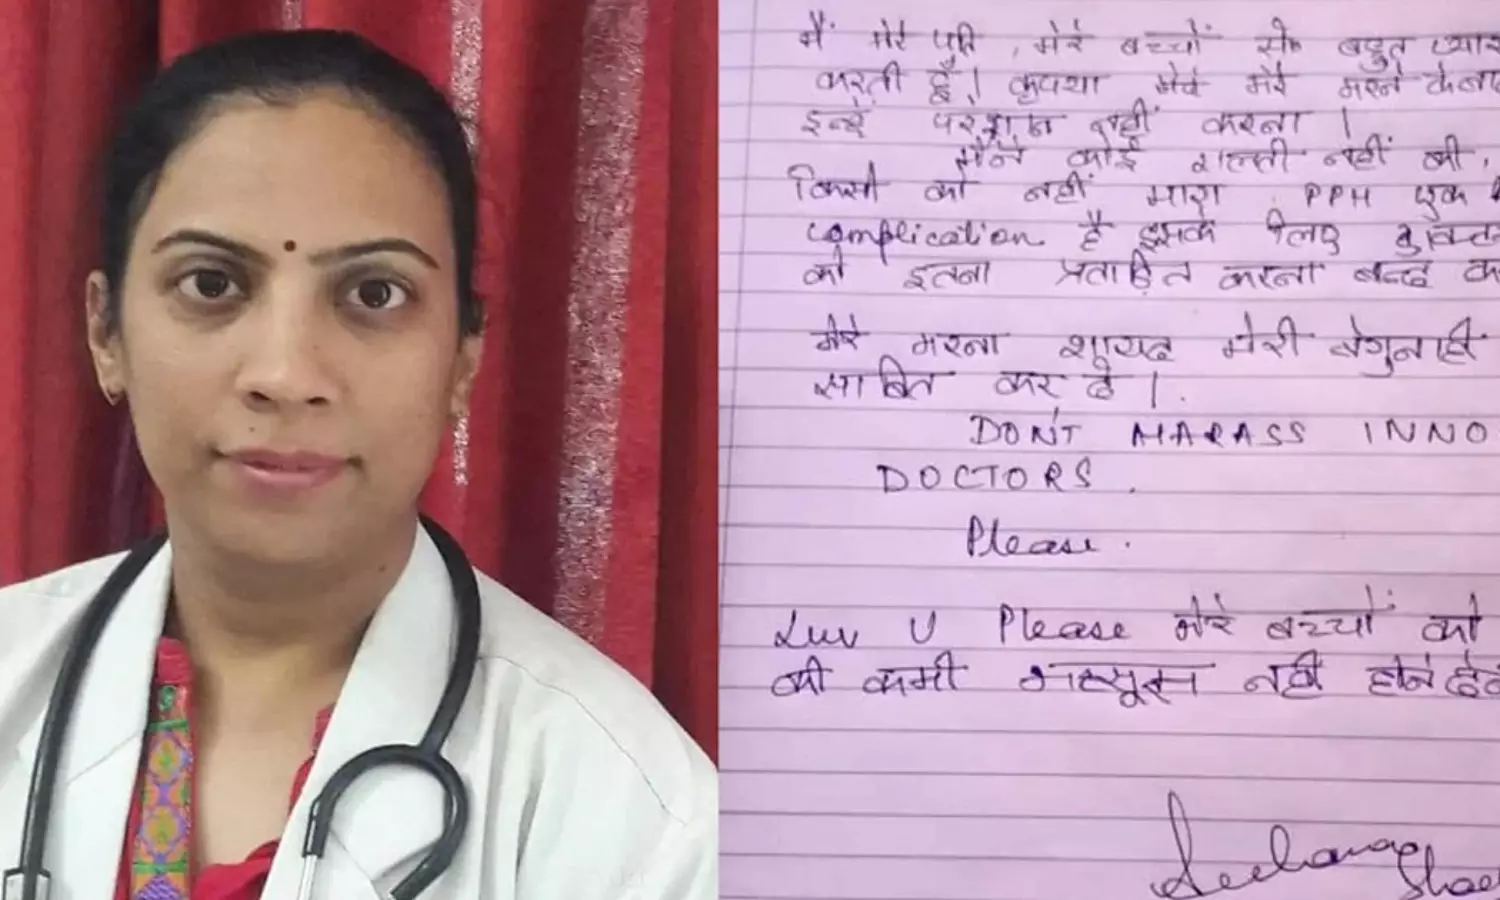 मैं मेरे पति, मेरे बच्चों से बहुत प्यार
करती हूँ। कृपया मेरे मरने के बाद
इन्हें परेशान नहीं करना।
मैंने कोई गलती नहीं की,
किसी को नहीं मारा PPH एक
complication है इसके लिए
को इतना प्रताड़ित करना बन्द
मेरे मरना शायद मेरी बेगुनाही
साबित कर दे।
DON'T HARASS INNO
DOCTORS.
Please.
Luv U Please मेरे बच्चों को
की कमी महसूस नहीं होने